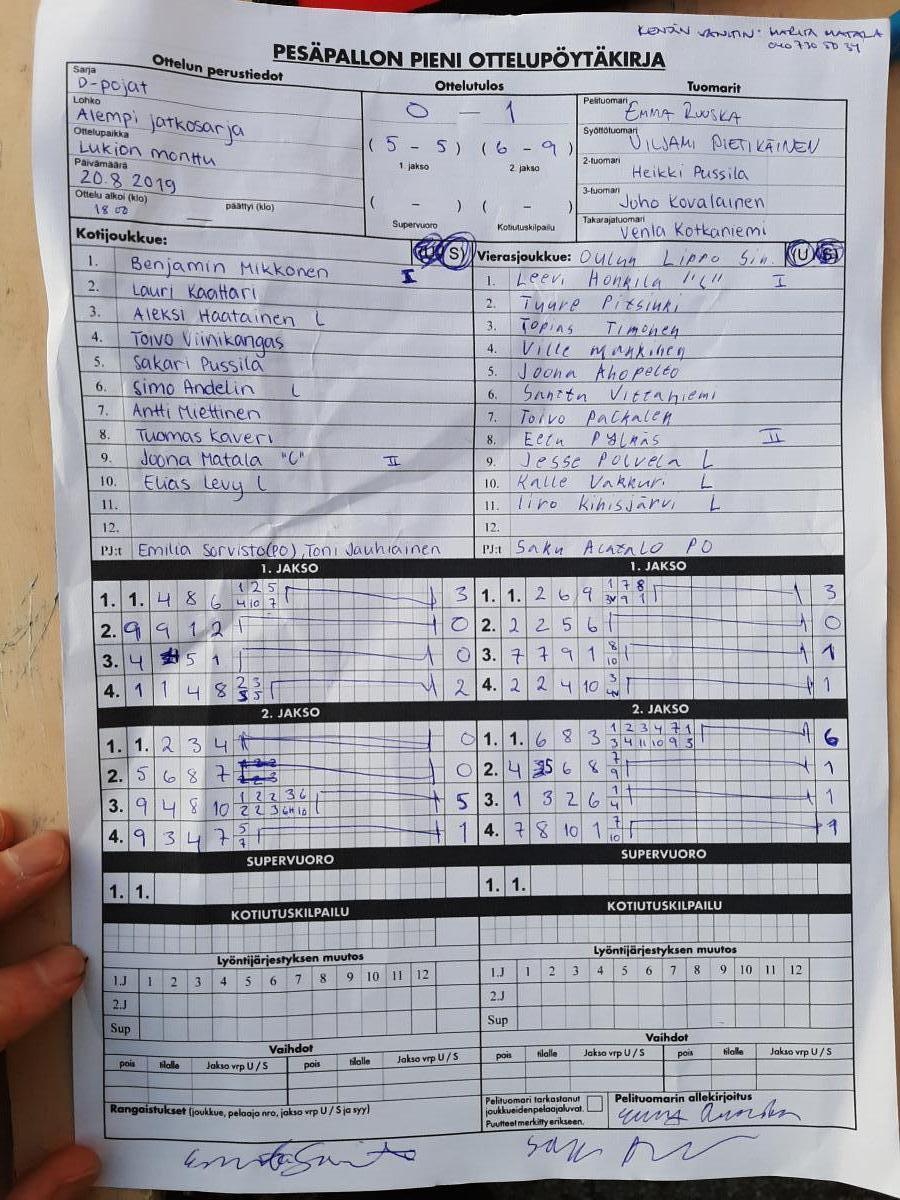 KENTÄN VANITIN: MARITA MATALA
PESÄPALLON PIENI OTTELUPÖYTÄKIRJA
Ottelun perustiedot
Sarja
D-pojat
Lohko
Alempi jatkosarja
Ottelupaikka
Lukion monttu
Päivämäärä
20.8 2019
Ottelu alkoi (klo) päättyi (klo)
18 00
Ottelutulos
0 - 1
( 5 - 5 ) ( 6 - 9 )
1. jakso 2. jakso
( - ) ( - )
Supervuoro Kotiutuskilpailu
Tuomarit
Pelituomari
EMMA RUUSKA
Syöttötuomari
VILJAMI PIETIKÄINEN
2-tuomari
Heikki Pussila
3-tuomari
Juho Kovalainen
Takarajatuomari
Venla Kotkaniemi
Kotijoukkue: U S
1. Benjamin Mikkonen I
2. Lauri Kaattari
3. Aleksi Haatainen L
4. Toivo Viinikangas
5. Sakari Pussila
6. Simo Andelin L
7. Antti Miettinen
8. Tuomas Kaveri
9. Joona Matala "C" II
10. Elias Levy L
11.
12.
PJ:t Emilia Sorvisto(PO), Toni Jauhiainen
Vierasjoukkue: OULUN LIPPO Sin. U S
1. Leevi Honkila "C" I
2. Tuure Pitsinki
3. Topias Timonen
4. Ville Mankinen
5. Joona Ahopelto
6. Santtu Viitaniemi
7. Toivo Packalen
8. Eetu Pylnäs II
9. Jesse Polvela L
10. Kalle Vakkuri L
11. Iiro Kihisjärvi L
12.
PJ:t Saku Alatalo PO
1. JAKSO
1. 1. 4 8 6 1 2 5 3
4 10 7
2. 9 9 1 2 0
3. 4 5 1 0
4. 1 1 4 8 2 3 2
3 5
2. JAKSO
1. 1. 2 3 4 0
2. 5 6 8 7 0
3. 9 4 8 10 1 2 2 3 6 5
4. 9 3 4 7 5 1
7
SUPERVUORO
1. 1.
KOTIUTUSKILPAILU
Lyöntijärjestyksen muutos
1.J 1 2 3 4 5 6 7 8 9 10 11 12
2.J
Sup
Vaihdot
pois tilalle Jakso vrp U / S pois tilalle Jakso vrp U / S
Rangaistukset (joukkue, pelaaja nro, jakso vrp U / S ja syy)
1. JAKSO
1. 1. 2 6 9 1 7 8 3
2. 2 2 5 6 0
3. 7 7 9 1 8 1
10
4. 2 2 4 10 3 1
2. JAKSO
1. 1. 6 8 3 1 2 3 4 7 1 6
3 4 11 10 9 3
2. 4 5 6 8 7 1
9
3. 1 3 2 6 1 1
4
4. 7 8 10 1 7 1
10
SUPERVUORO
1. 1.
KOTIUTUSKILPAILU
Lyöntijärjestyksen muutos
1.J 1 2 3 4 5 6 7 8 9 10 11 12
2.J
Sup
Vaihdot
pois tilalle Jakso vrp U / S pois tilalle Jakso vrp U / S
Pelituomari tarkastanut
joukkueidenpelaajaluvat.
Puutteet merkitty erikseen.
Pelituomarin allekirjoitus